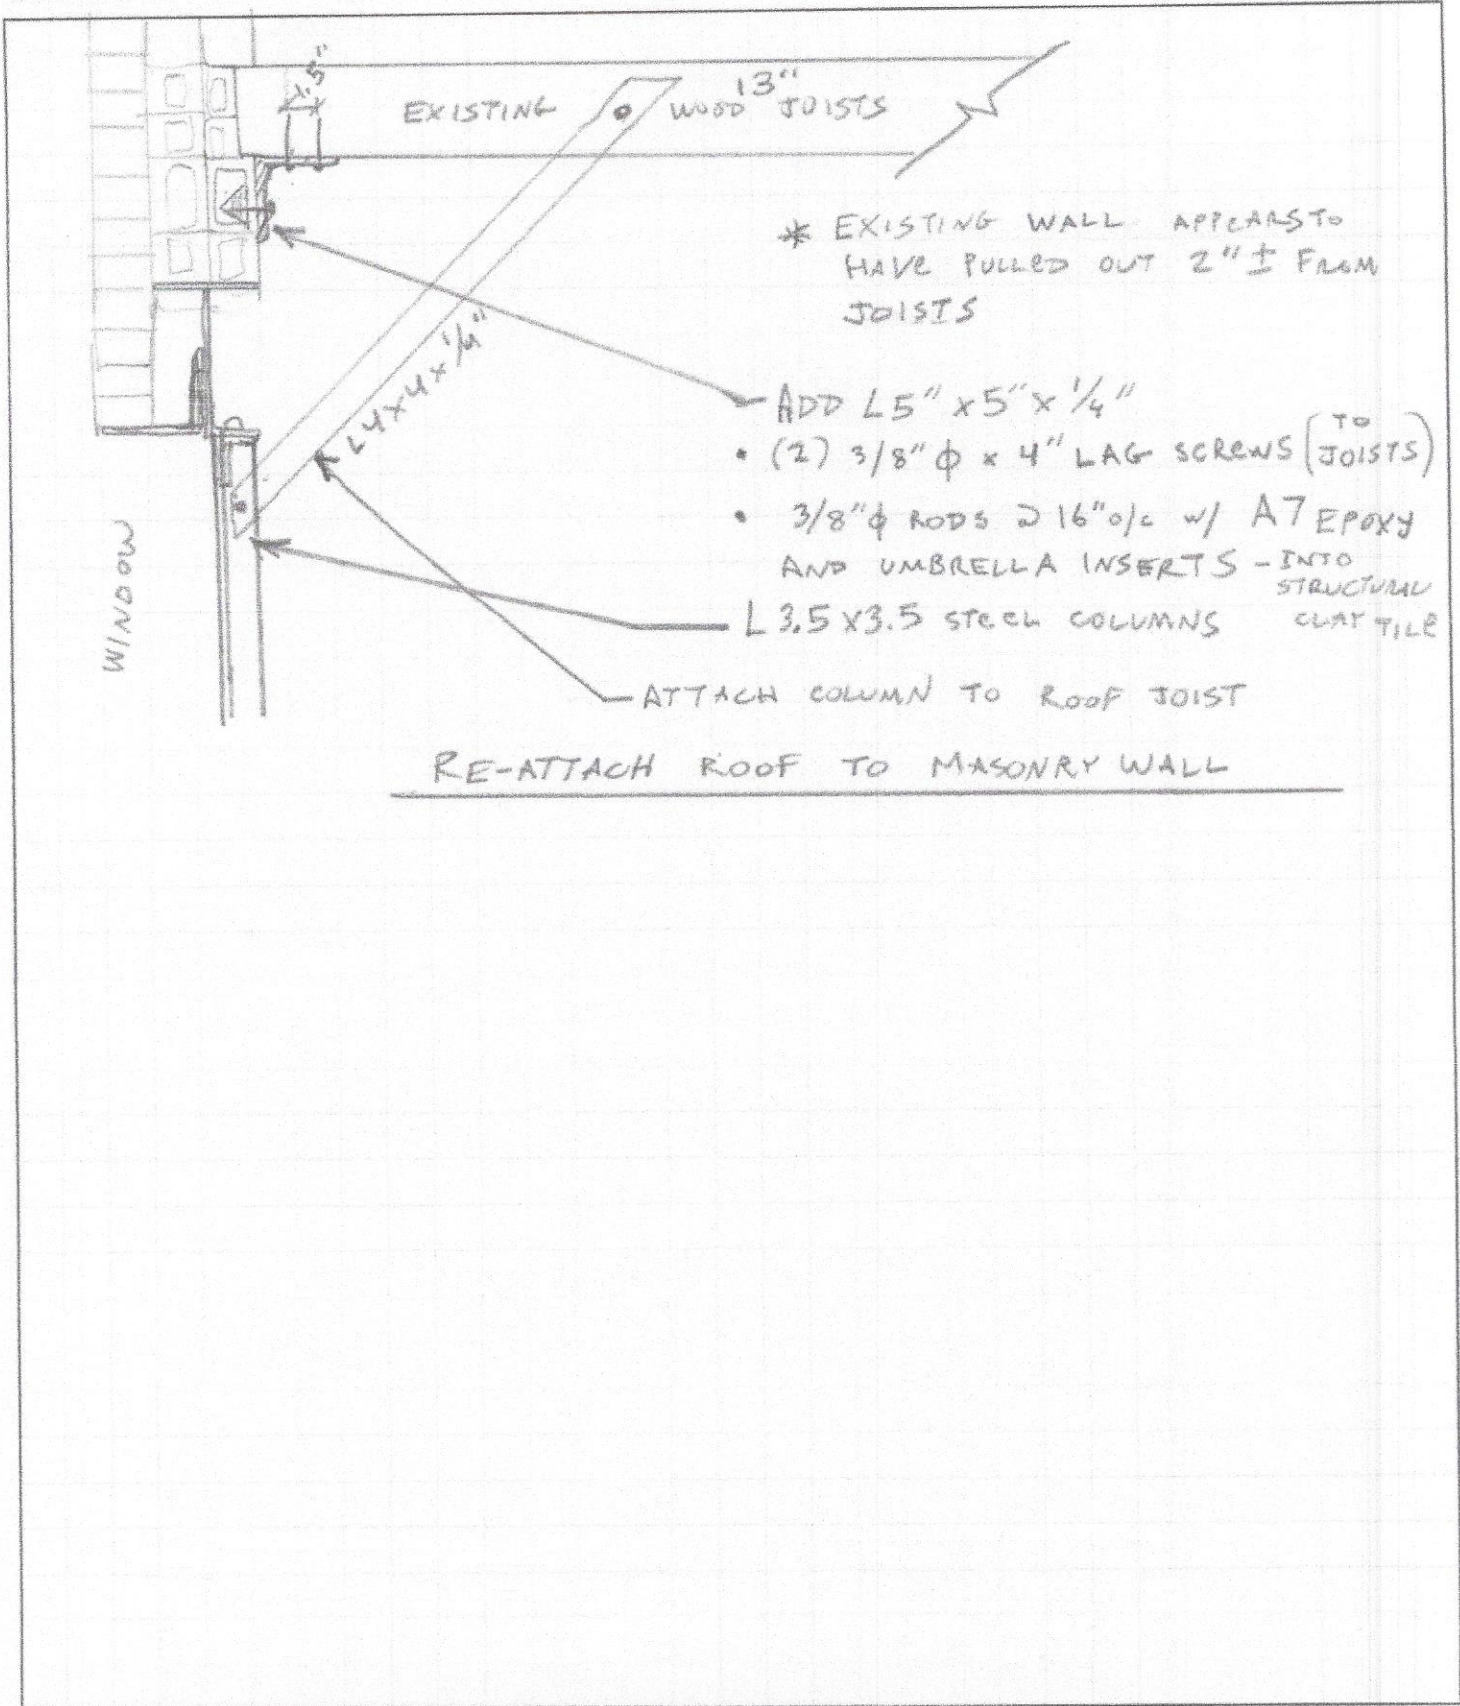 1.5"
EXISTING WOOD 13" JOISTS
* EXISTING WALL APPEARS TO
HAVE PULLED OUT 2" ± FROM
JOISTS
L4x4x1/4"
ADD L5" x 5" x 1/4"
• (2) 3/8" ϕ x 4" LAG SCREWS (TO JOISTS)
• 3/8" ϕ RODS @ 16" o/c w/ A7 EPOXY
AND UMBRELLA INSERTS - INTO
STRUCTURAL
CLAY TILE
L 3.5 x 3.5 STEEL COLUMNS
WINDOW
ATTACH COLUMN TO ROOF JOIST
RE-ATTACH ROOF TO MASONRY WALL